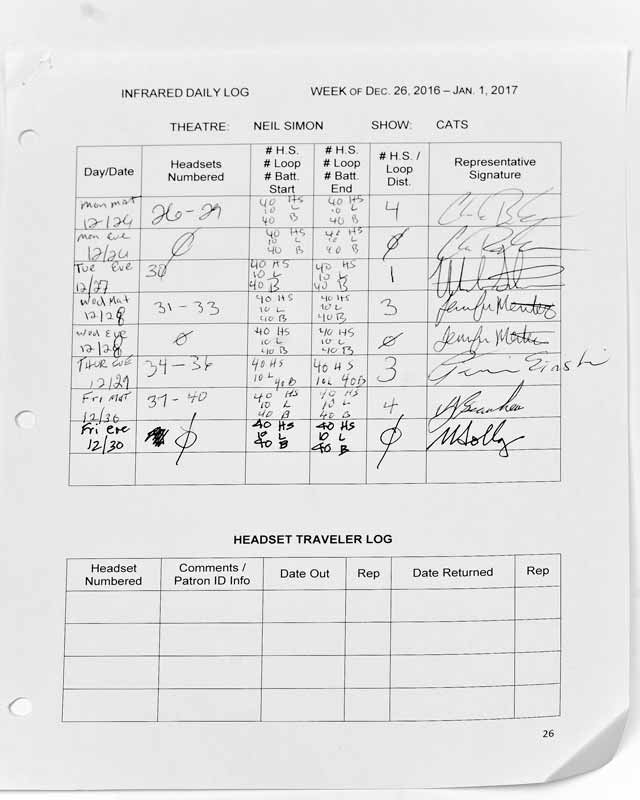 INFRARED DAILY LOG WEEK OF DEC. 26, 2016 – JAN. 1, 2017
THEATRE: NEIL SIMON SHOW: CATS
Day/Date Headsets Numbered # H.S. # Loop # Batt. Start # H.S. # Loop # Batt. End # H.S. / Loop Dist. Representative Signature
Mon mat 12/26 26-29 40 HS 10 L 40 B 40 HS 10 L 40 B 4
Mon Eve 12/26 Ø 40 HS 10 L 40 B 40 HS 10 L 40 B Ø
Tue Eve 12/27 30 40 HS 10 L 40 B 40 HS 10 L 40 B 1
Wed Mat 12/28 31-33 40 HS 10 L 40 B 40 HS 10 L 40 B 3 Jennifer
Wed Eve 12/28 Ø 40 HS 10 L 40 B 40 HS 10 L 40 B Ø Jennifer
Thur Eve 12/29 34-36 40 HS 10 L 40 B 40 HS 10L 40B 3
Fri Mat 12/30 37-40 40 HS 10 L 40 B 40 HS 10 L 40 B 4
Fri eve 12/30 Ø 40 HS 10 L 40 B 40 HS 10 L 40 B Ø
HEADSET TRAVELER LOG
Headset Numbered Comments / Patron ID Info Date Out Rep Date Returned Rep
26